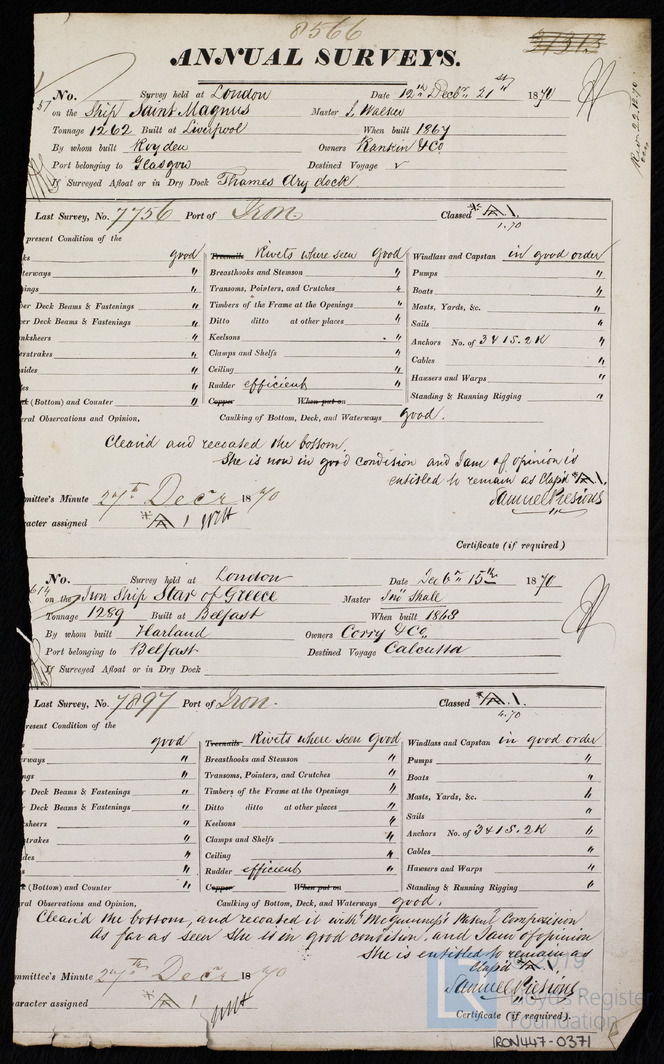 8566
ANNUAL SURVEYS.
No. Survey held at London Date 12th Decbr 21st 1870
57 on the Ship Saint Magnus Master J. Walker
Tonnage 1262 Built at Liverpool When built 1867
By whom built Royden Owners Rankin & Co
Port belonging to Glasgow Destined Voyage
If Surveyed Afloat or in Dry Dock Thames dry dock.
Last Survey, No. 7756 Port of Iron Classed A.1.
1.70
present Condition of the
good Treenails Rivets where seen Good Windlass and Capstan in good order
terways " Breasthooks and Stemson " Pumps "
ings " Transoms, Pointers, and Crutches " Boats "
er Deck Beams & Fastenings " Timbers of the Frame at the Openings " Masts, Yards, &c. "
er Deck Beams & Fastenings " Ditto ditto at other places " Sails "
nksheers " Keelsons " Anchors No. of 3 & 1 S. 2 K "
erstrakes " Clamps and Shelfs " Cables "
sides " Ceiling " Hawsers and Warps "
es " Rudder efficient " Standing & Running Rigging "
(Bottom) and Counter " Copper When put on
ral Observations and Opinion, Caulking of Bottom, Deck, and Waterways good.
Clean'd and recoated the bottom.
She is now in good condition and I am of opinion is
entitled to remain as Class'd A.1.
Samuel Presious
mmittee's Minute 27th Decr 1870
racter assigned A 1
Certificate (if required)
No. Survey held at London Date Dec 6th 15th 1870
614 on the Iron Ship Star of Greece Master Jno Shall
Tonnage 1289 Built at Belfast When built 1868
By whom built Harland Owners Corry & Co.
Port belonging to Belfast Destined Voyage Calcutta
If Surveyed Afloat or in Dry Dock
Last Survey, No. 7897 Port of Iron. Classed A.1.
4.70
resent Condition of the
good Treenails Rivets where seen Good Windlass and Capstan in good order
rways " Breasthooks and Stemson " Pumps "
ngs " Transoms, Pointers, and Crutches " Boats "
r Deck Beams & Fastenings " Timbers of the Frame at the Openings " Masts, Yards, &c. "
r Deck Beams & Fastenings " Ditto ditto at other places " Sails "
sheers " Keelsons " Anchors No. of 3 & 1 S. 2 K "
trakes " Clamps and Shelfs " Cables "
des " Ceiling " Hawsers and Warps "
Rudder efficient " Standing & Running Rigging "
(Bottom) and Counter " Copper When put on
ral Observations and Opinion, Caulking of Bottom, Deck, and Waterways good.
Clean'd the bottom, and recoated it with Patent Composition
As far as seen She is in good condition, and I am of opinion
She is entitled to remain as
Class'd A.1.
Samuel Presious
mmittee's Minute 27th Decr 1870
aracter assigned A 1
Certificate (if required).
Lloyd's Register
Foundation
IRON447-0371